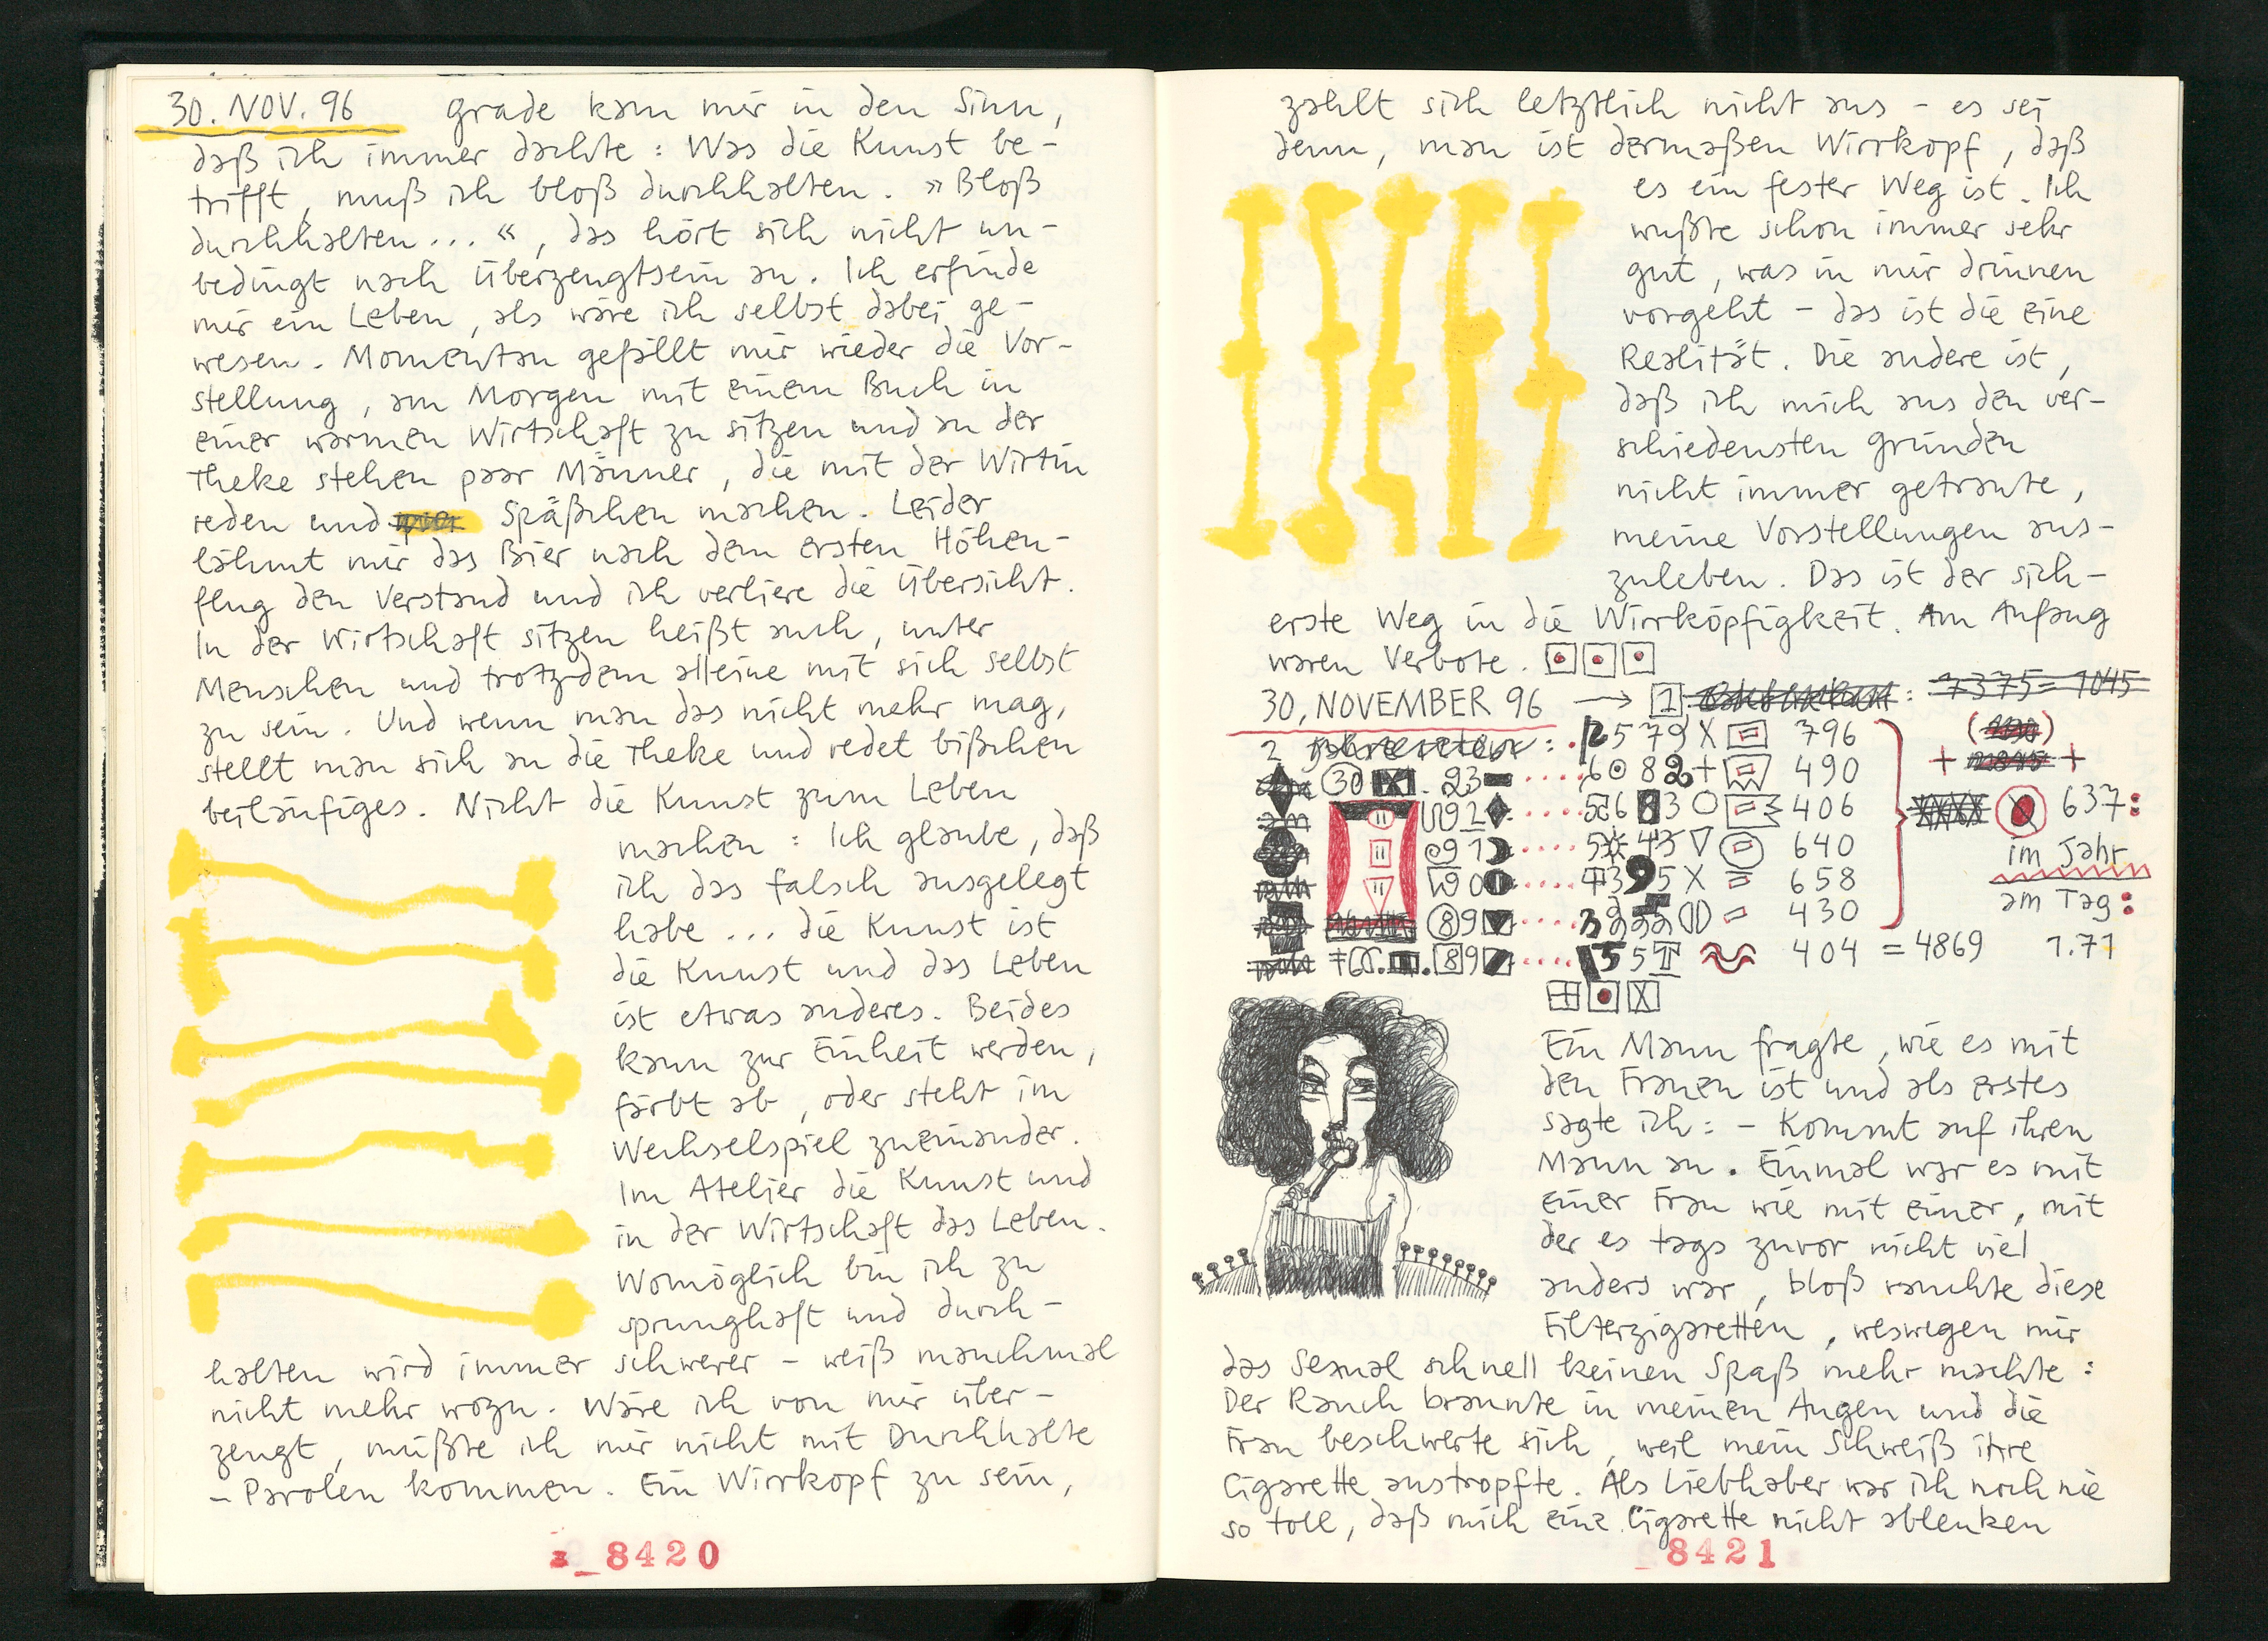 30. NOV. 96 grade kam mir in den Sinn,
daß ich immer dachte: Was die Kunst be-
trifft, muß ich bloß durchhalten. »Bloß
durchhalten...«, das hört sich nicht un-
bedingt nach Überzeugtsein an. Ich erfinde
mir ein Leben, als wäre ich selbst dabei ge-
wesen. Momentan gefällt mir wieder die Vor-
stellung, am Morgen mit einem Buch in
einer warmen Wirtschaft zu sitzen und an der
Theke stehen paar Männer, die mit der Wirtin
reden und Späßchen machen. Leider
lähmt mir das Bier nach dem ersten Höhen-
flug den Verstand und ich verliere die Übersicht.
In der Wirtschaft sitzen heißt auch, unter
Menschen und trotzdem alleine mit sich selbst
zu sein. Und wenn man das nicht mehr mag,
stellt man sich an die Theke und redet bißchen
beiläufiges. Nicht die Kunst zum Leben
machen: Ich glaube, daß
ich das falsch ausgelegt
habe ... die Kunst ist
die Kunst und das Leben
ist etwas anderes. Beides
kann zur Einheit werden,
färbt ab, oder steht im
Wechselspiel zueinander.
Im Atelier die Kunst und
in der Wirtschaft das Leben.
Womöglich bin ich zu
sprunghaft und durch-
halten wird immer schwerer - weiß manchmal
nicht mehr wozu. Wäre ich von mir über-
zeugt, müßte ich mir nicht mit Durchhalte
- Parolen kommen. Ein Wirrkopf zu sein,
8420
zahlt sich letztlich nicht aus - es sei
denn, man ist dermaßen Wirrkopf, daß
es ein fester Weg ist. Ich
wußte schon immer sehr
gut, was in mir drinnen
vorgeht - das ist die eine
Realität. Die andere ist,
daß ich mich aus den ver-
schiedensten Gründen
nicht immer getraute,
meine Vorstellungen aus-
zuleben. Das ist der sich-
erste Weg in die Wirrköpfigkeit. Am Anfang
waren Verbote.
30. NOVEMBER 96 → 1 : 7375 = 1045
2 : 2579 X 796
30 X . 93 ..... 6082 + 490
92 ..... 5683 O 406 637:
91 ..... 5 45 640 im Jahr
90 ..... 4395 X = 658 am Tag:
89 ..... 430
89 ..... 55 404 = 4869 1.71
Ein Mann fragte, wie es mit
den Frauen ist und als erstes
sagte ich: - Kommt auf ihren
Mann an. Einmal war es mit
einer Frau wie mit einer, mit
der es tags zuvor nicht viel
anders war, bloß rauchte diese
Filterzigaretten, weswegen mir
das Sexual schnell keinen Spaß mehr machte:
Der Rauch brannte in meinen Augen und die
Frau beschwerte sich, weil mein Schweiß ihre
Cigarette austropfte. Als Liebhaber war ich noch nie
so toll, daß mich eine Cigarette nicht ablenken
8421